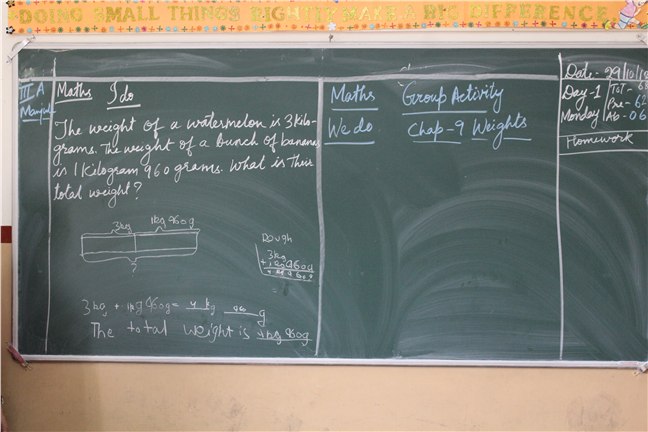 DOING SMALL THINGS RIGHTLY MAKE A BIG DIFFERENCE
III A
Maths I do
The weight of a watermelon is 3 kilo-
grams. The weight of a bunch of bananas
is 1 Kilogram 960 grams. What is their
total weight?
3kg 1kg 960g
?
Rough
3kg
+ 1kg 960g
4kg 960g
=
3kg + 1kg 960g = 4 kg 96 g
The total weight is 4kg 960g
Maths Group Activity
We do Chap-9 Weights
Date - 29/10/
Day-1 ToT - 68
Monday Pre - 62
Ab - 06
Homework